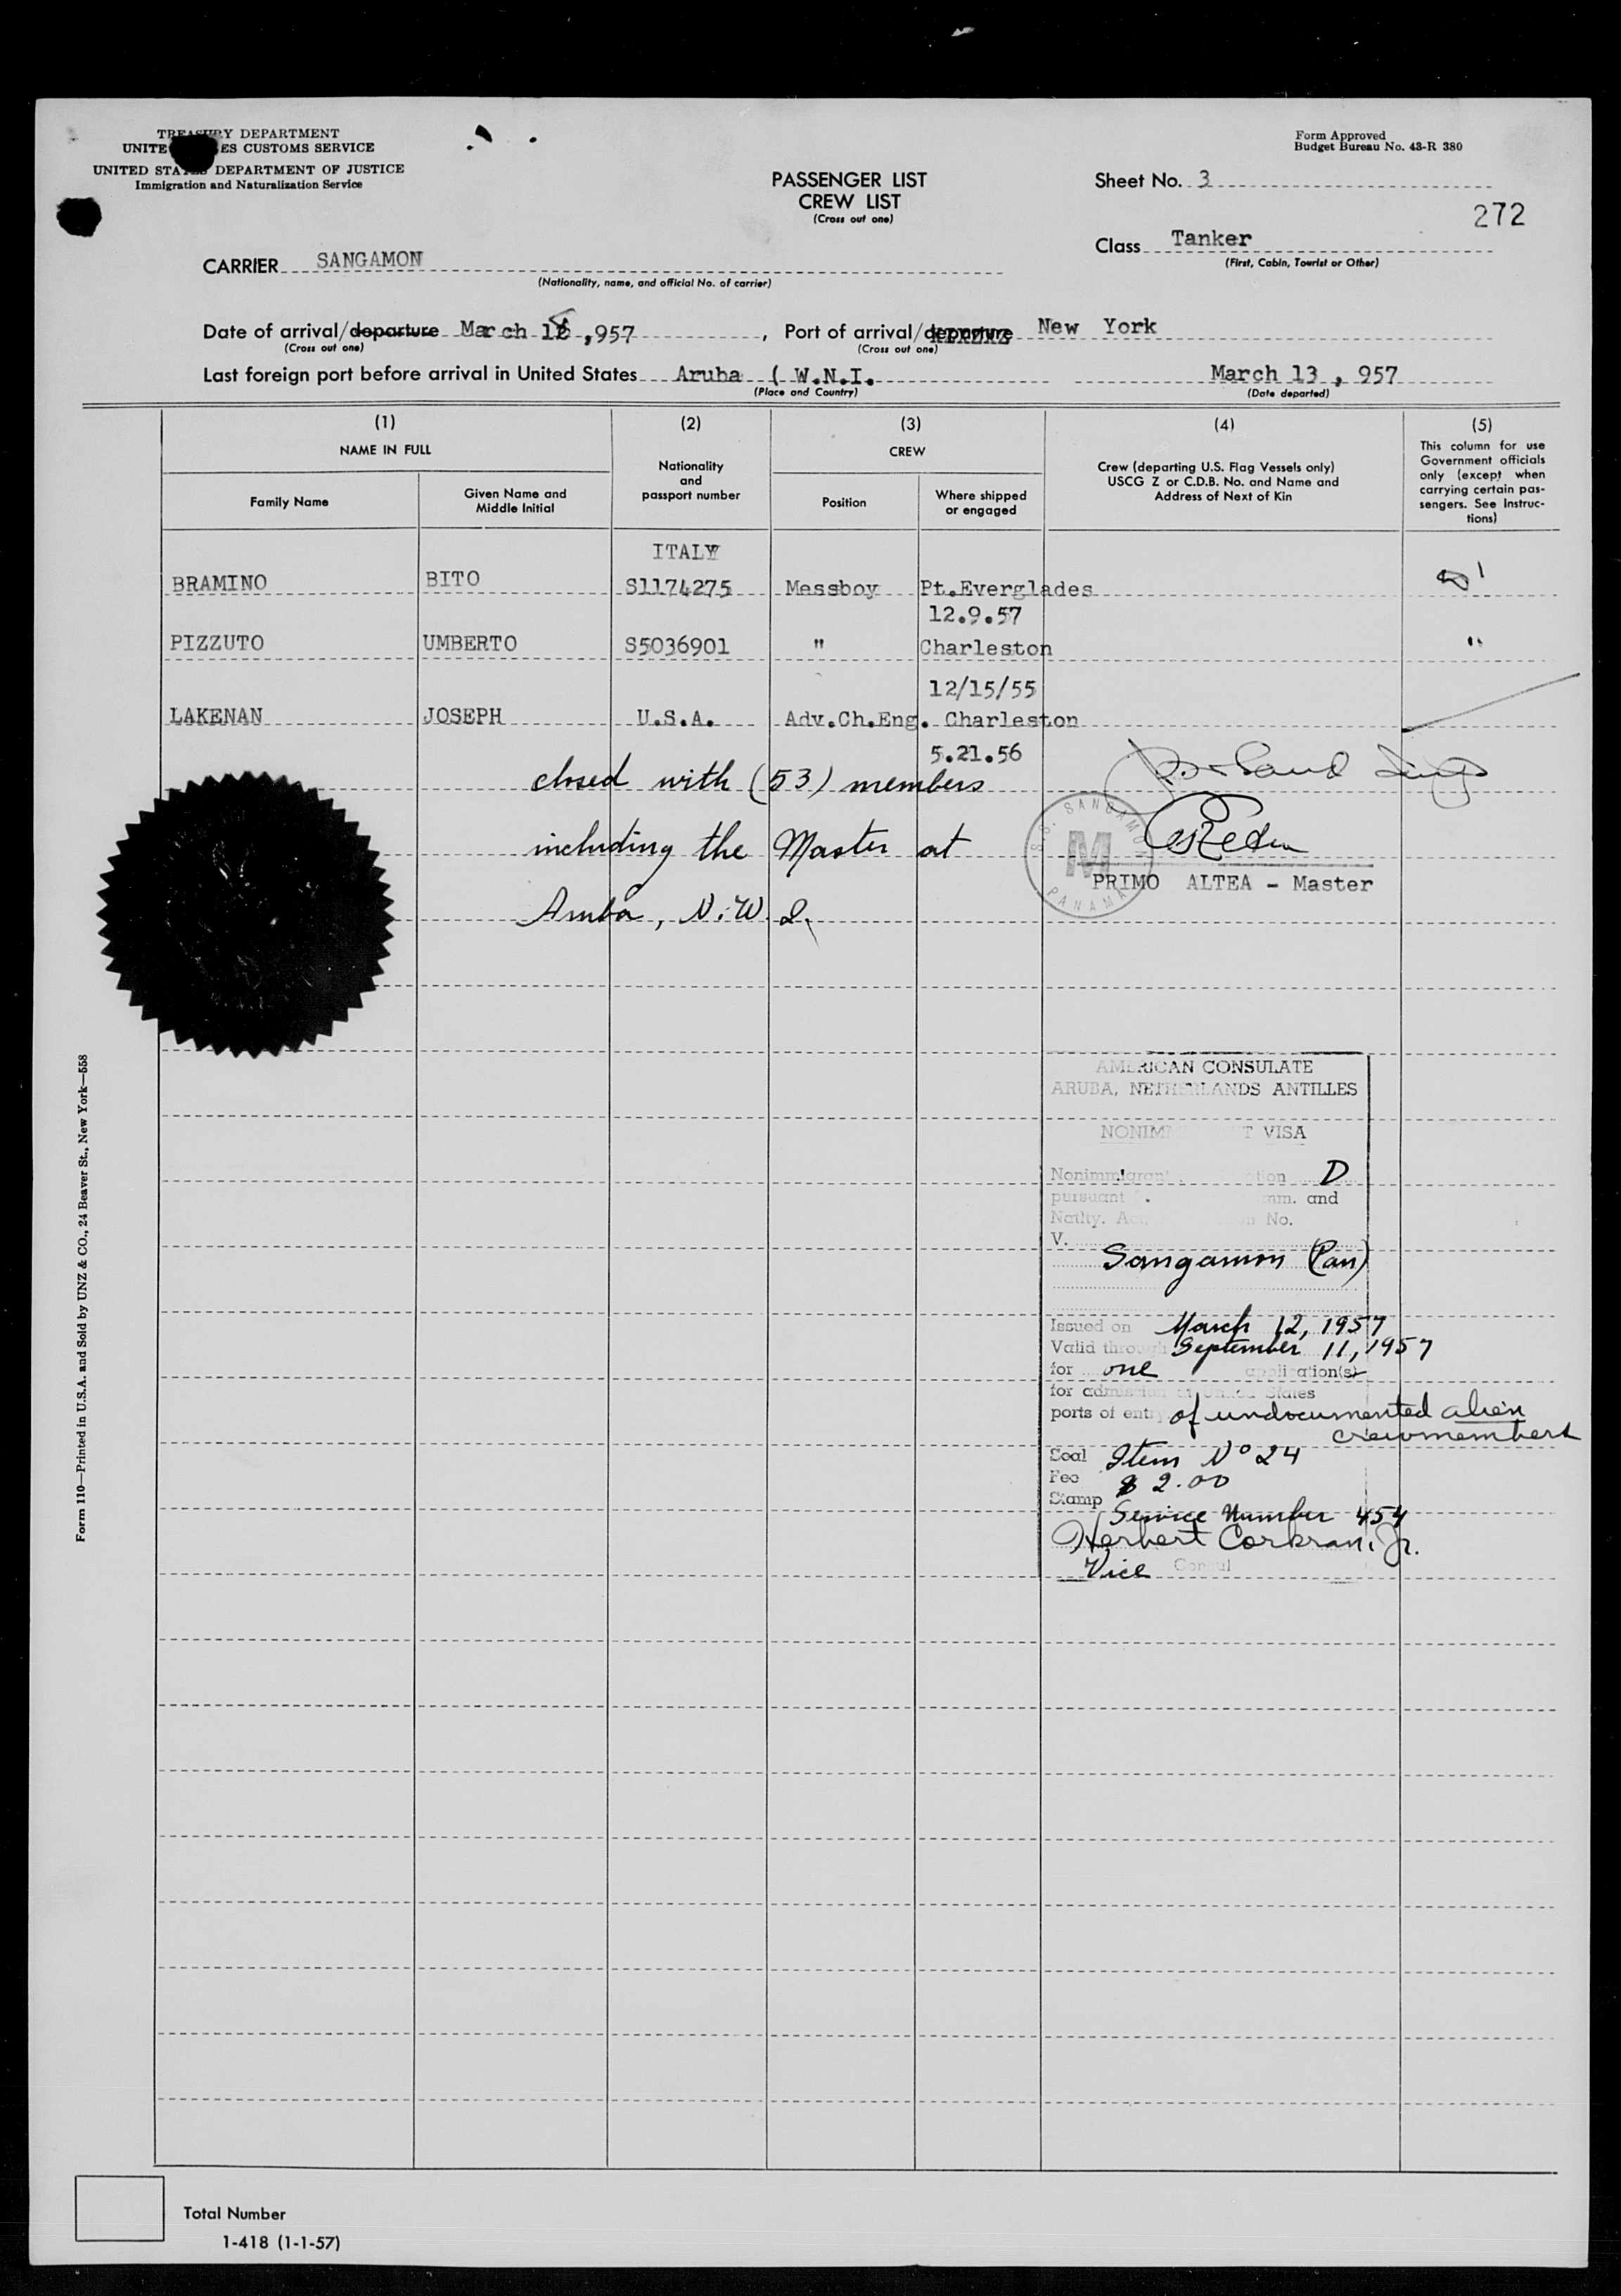 TREASURY DEPARTMENT
UNITE ES CUSTOMS SERVICE
UNITED STATES DEPARTMENT OF JUSTICE
Immigration and Naturalization Service
Form Approved
Budget Bureau No. 43-R 380
PASSENGER LIST
CREW LIST
(Cross out one)
Sheet No. 3
272
Class Tanker
(First, Cabin, Tourist or Other)
CARRIER SANGAMON
(Nationality, name, and official No. of carrier)
Date of arrival/departure March 18 ,957 , Port of arrival/departure New York
(Cross out one) (Cross out one)
Last foreign port before arrival in United States Aruba ( W.N.I. March 13 , 957
(Place and Country) (Date departed)
(1) (2) (3) (4) (5)
NAME IN FULL
Family Name
Given Name and
Middle Initial
Nationality
and
passport number
CREW
Position
Where shipped
or engaged
Crew (departing U.S. Flag Vessels only)
USCG Z or C.D.B. No. and Name and
Address of Next of Kin
This column for use
Government officials
only (except when
carrying certain pas-
sengers. See Instruc-
tions)
ITALY
BRAMINO BITO S1174275 Messboy Pt.Everglades
12.9.57
PIZZUTO UMBERTO S5036901 " Charleston "
12/15/55
LAKENAN JOSEPH U.S.A. Adv.Ch.Eng. Charleston
5.21.56
closed with (53) members
including the Master at
Aruba, N.W.I.
S.S. SANGAMON
M
PANAMA
PRIMO ALTEA - Master
AMERICAN CONSULATE
ARUBA, NETHERLANDS ANTILLES
NONIM T VISA
Nonimmigrant tion D
pursuant mm. and
Natlty. Act No.
V.
Sangamon (Pan)
Issued on March 12, 1957
Valid through September 11, 1957
for one application(s)
for admission at United States
ports of entry of undocumented alien
crewmembers
Seal Item No 24
Fee $ 2.00
Stamp Service Number 454
Herbert Corkran, Jr.
Vice Consul
Form 110—Printed in U.S.A. and Sold by UNZ & CO., 24 Beaver St., New York—558
Total Number
1-418 (1-1-57)